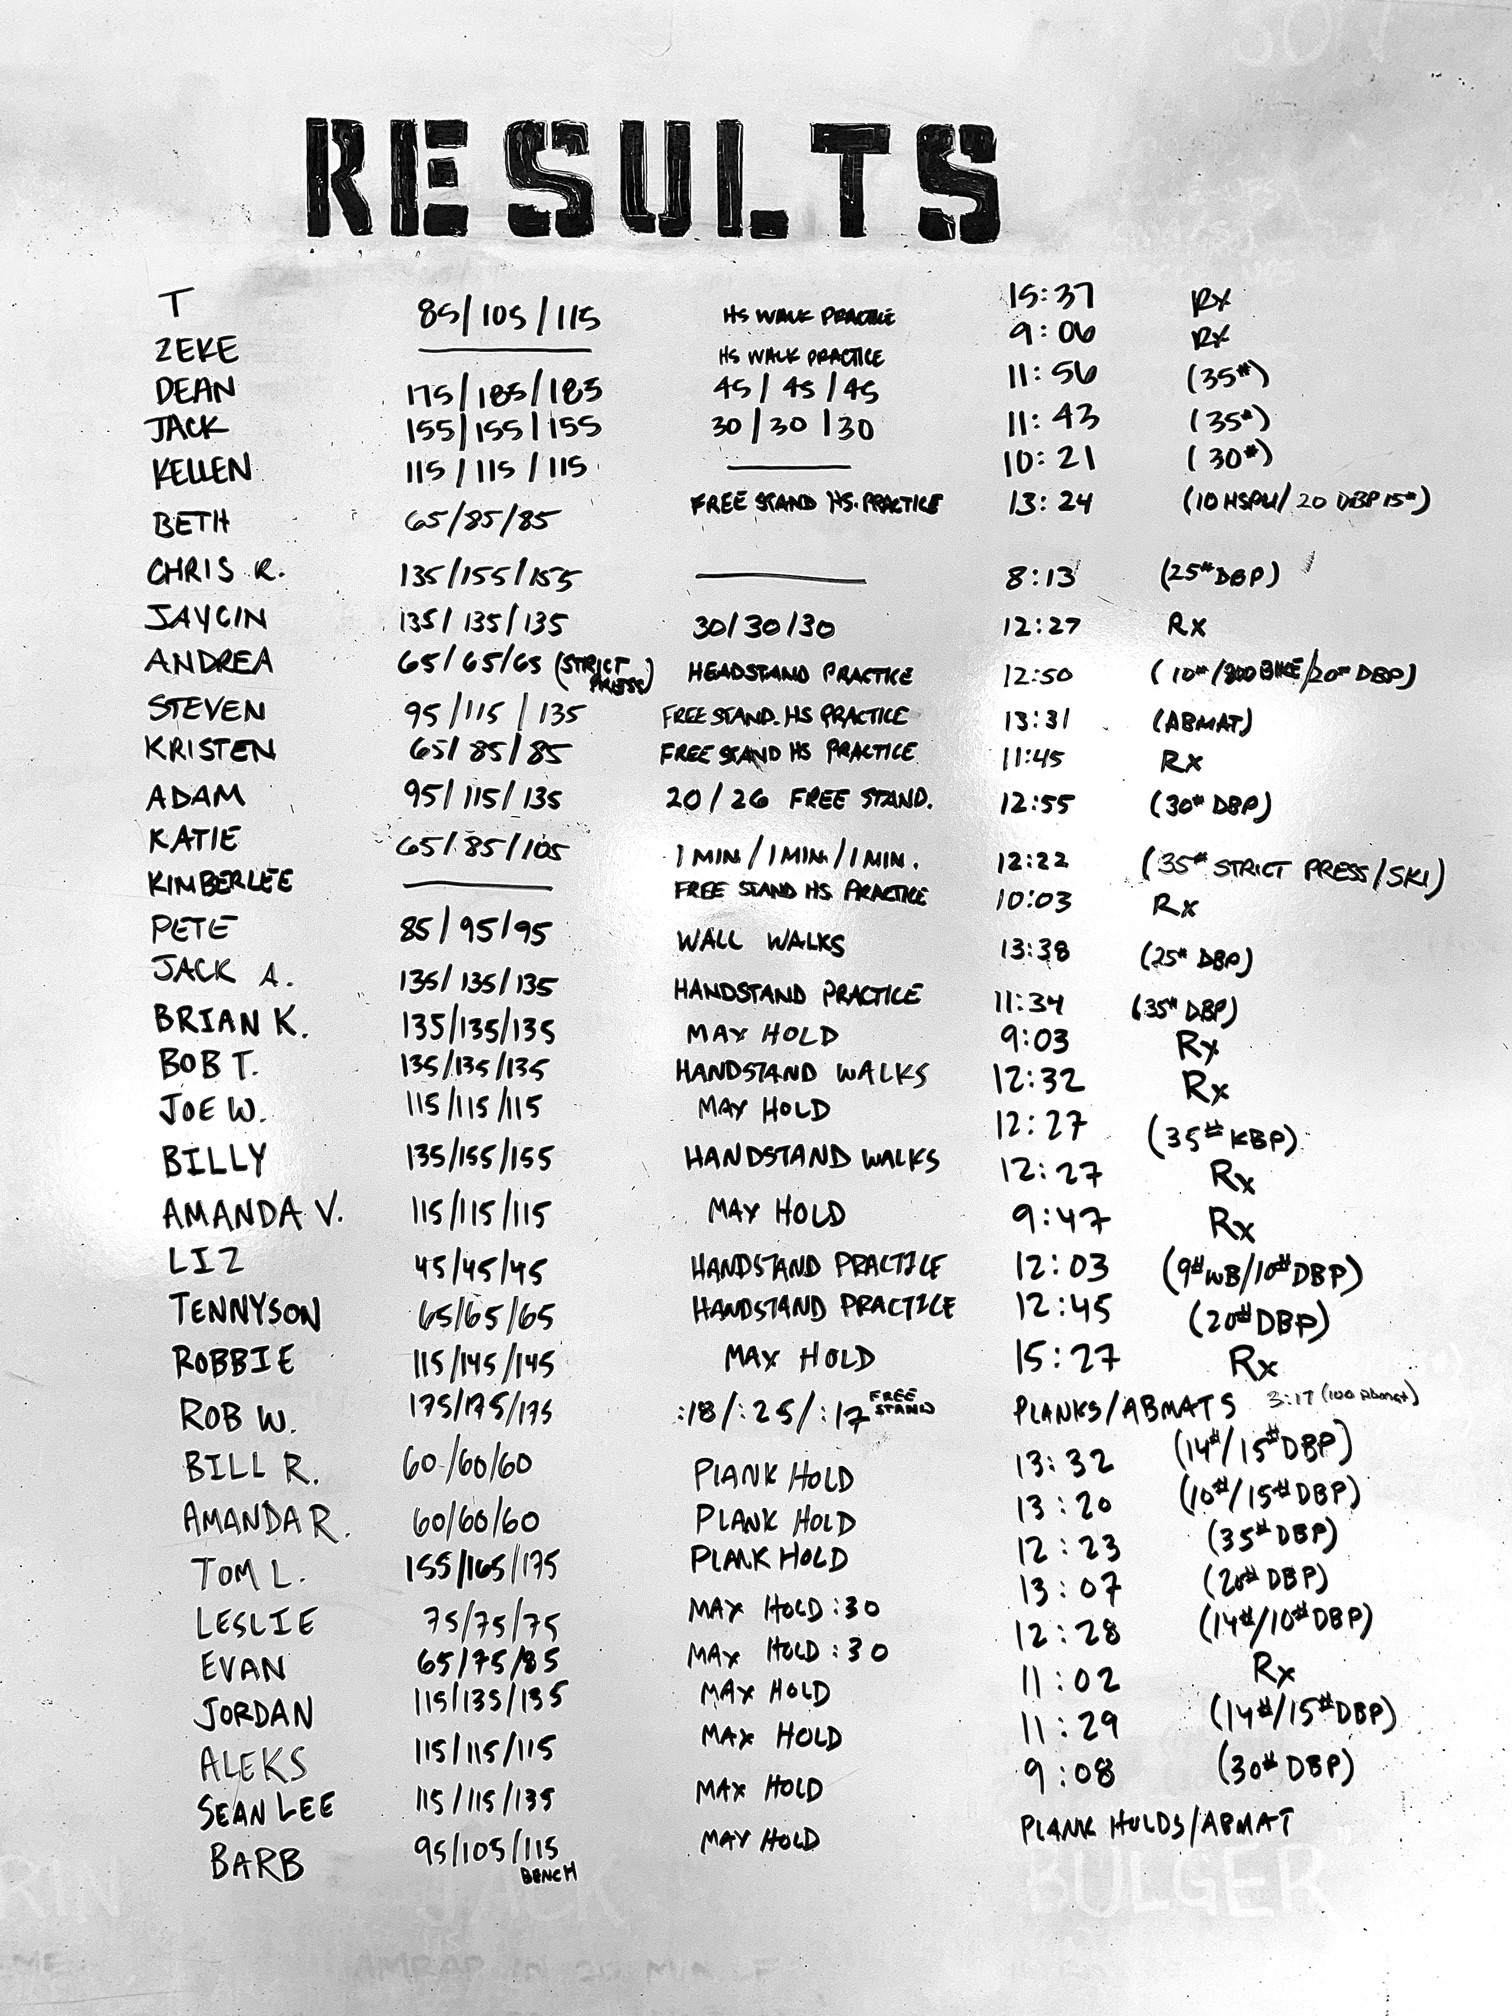 RESULTS
T 85/105/115 HS WALK PRACTICE 15:37 Rx
ZEKE HS WALK PRACTICE 9:06 Rx
DEAN 175/185/185 45/45/45 11:56 (35#)
JACK 155/155/155 30/30/30 11:43 (35#)
KELLEN 115/115/115 10:21 (30#)
BETH 65/85/85 FREE STAND HS. PRACTICE 13:24 (10 HSPU/20 DBP 15#)
CHRIS R. 135/155/155 8:13 (25# DBP)
JAYCIN 135/135/135 30/30/30 12:27 Rx
ANDREA 65/65/65 (STRICT PRESS) HEADSTAND PRACTICE 12:50 (10#/800 BIKE/20# DBP)
STEVEN 95/115/135 FREE STAND. HS PRACTICE 13:31 (ABMAT)
KRISTEN 65/85/85 FREE STAND HS PRACTICE 11:45 Rx
ADAM 95/115/135 20/26 FREE STAND. 12:55 (30# DBP)
KATIE 65/85/105 1 MIN/1 MIN/1 MIN. 12:22 (35# STRICT PRESS/SKI)
KIMBERLEE FREE STAND HS PRACTICE 10:03 Rx
PETE 85/95/95 WALL WALKS 13:38 (25# DBP)
JACK A. 135/135/135 HANDSTAND PRACTICE 11:34 (35# DBP)
BRIAN K. 135/135/135 MAX HOLD 9:03 Rx
BOB T. 135/135/135 HANDSTAND WALKS 12:32 Rx
JOE W. 115/115/115 MAX HOLD 12:27 (35# KBP)
BILLY 135/155/155 HANDSTAND WALKS 12:27 Rx
AMANDA V. 115/115/115 MAX HOLD 9:47 Rx
LIZ 45/45/45 HANDSTAND PRACTICE 12:03 (9# WB/10# DBP)
TENNYSON 65/65/65 HANDSTAND PRACTICE 12:45 (20# DBP)
ROBBIE 115/145/145 MAX HOLD 15:27 Rx
ROB W. 175/175/175 :18/:25/:17 FREE STAND PLANKS/ABMATS 3:17 (100 Abmat)
BILL R. 60/60/60 PLANK HOLD 13:32 (14#/15# DBP)
AMANDA R. 60/60/60 PLANK HOLD 13:20 (10#/15# DBP)
TOM L. 155/165/175 PLANK HOLD 12:23 (35# DBP)
LESLIE 75/75/75 MAX HOLD :30 13:07 (20# DBP)
EVAN 65/75/85 MAX HOLD :30 12:28 (14#/10# DBP)
JORDAN 115/135/135 MAX HOLD 11:02 Rx
ALEKS 115/115/115 MAX HOLD 11:29 (14#/15# DBP)
SEAN LEE 115/115/135 MAX HOLD 9:08 (30# DBP)
BARB 95/105/115 BENCH MAX HOLD PLANK HOLDS/ABMAT
RIN JACK BULGER"
AMRAP IN 20 MIN OF